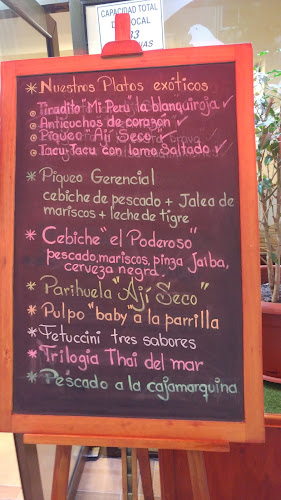 CAPACIDAD TOTAL
DEL LOCAL
33
* Nuestros Platos exóticos
Tiradito "Mi Perú" la blanquiroja ✓
Anticuchos de corazón ✓
Piqueo "Ají Seco" ✓
Tacu-Tacu con lomo Saltado ✓
* Piqueo Gerencial
cebiche de pescado + Jalea de
mariscos + leche de tigre
* Cebiche "el Poderoso"
pescado, mariscos, pinza Jaiba,
cerveza negra.
* Parihuela "Ají Seco"
* Pulpo "baby" a la parrilla
* Fetuccini tres sabores
* Trilogía Thai del mar
* Pescado a la cajamarquina